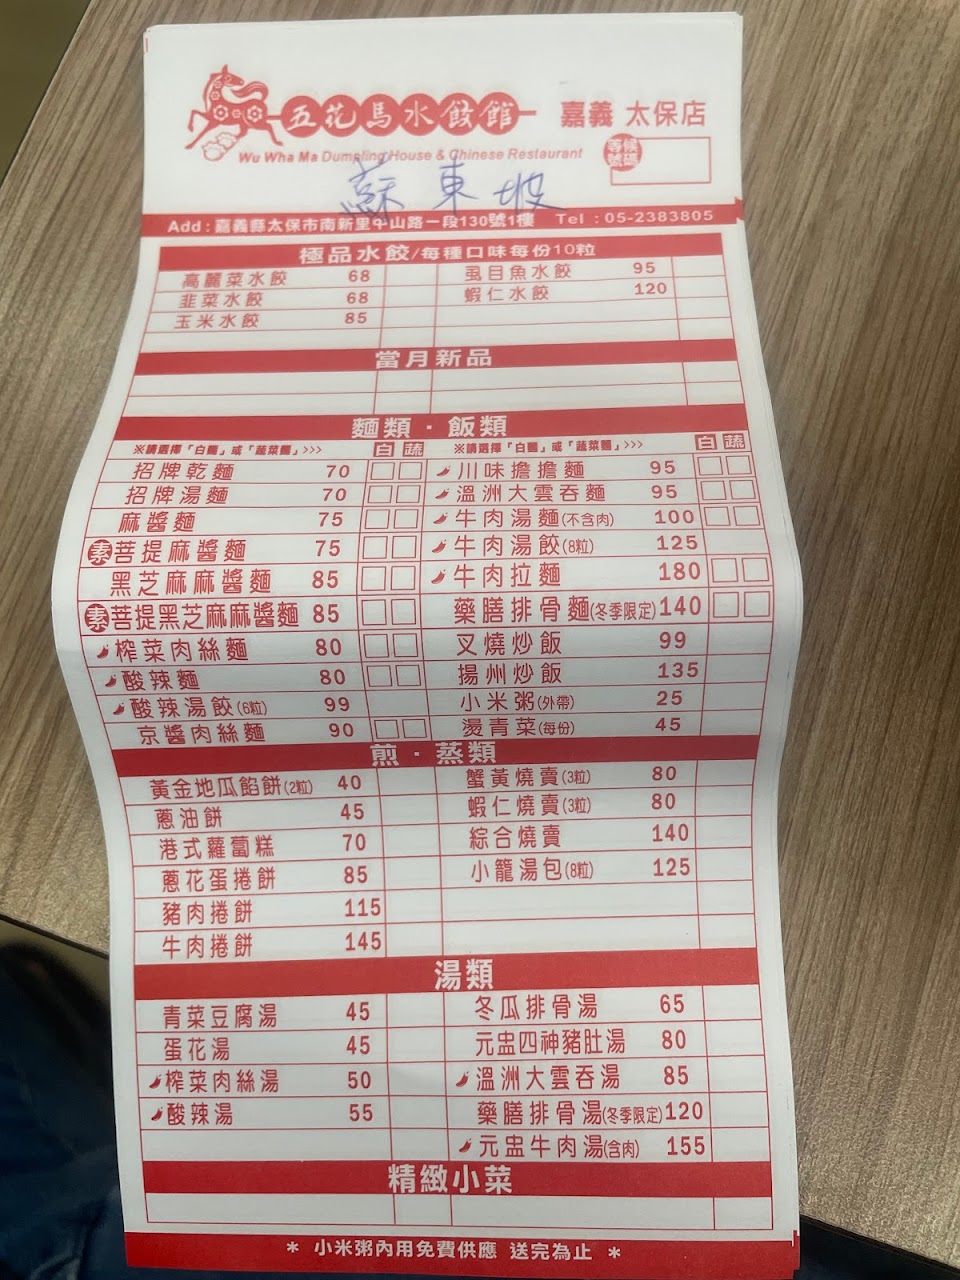 五花馬水餃館 嘉義 太保店
等候號碼
Wu Wha Ma Dumpling House & Chinese Restaurant
蘇東坡
Add:嘉義縣太保市南新里中山路一段130號1樓 Tel:05-2383805
極品水餃/每種口味每份10粒
高麗菜水餃 68 虱目魚水餃 95
韭菜水餃 68 蝦仁水餃 120
玉米水餃 85
當月新品
麵類·飯類
※請選擇「白麵」或「蔬菜麵」>>> 白 蔬 ※請選擇「白麵」或「蔬菜麵」>>> 白 蔬
招牌乾麵 70 川味擔擔麵 95
招牌湯麵 70 溫洲大雲吞麵 95
麻醬麵 75 牛肉湯麵(不含肉) 100
素菩提麻醬麵 75 牛肉湯餃(8粒) 125
黑芝麻麻醬麵 85 牛肉拉麵 180
素菩提黑芝麻麻醬麵 85 藥膳排骨麵(冬季限定) 140
榨菜肉絲麵 80 叉燒炒飯 99
酸辣麵 80 揚州炒飯 135
酸辣湯餃(6粒) 99 小米粥(外帶) 25
京醬肉絲麵 90 燙青菜(每份) 45
煎·蒸類
黃金地瓜餡餅(2粒) 40 蟹黃燒賣(3粒) 80
蔥油餅 45 蝦仁燒賣(3粒) 80
港式蘿蔔糕 70 綜合燒賣 140
蔥花蛋捲餅 85 小籠湯包(8粒) 125
豬肉捲餅 115
牛肉捲餅 145
湯類
青菜豆腐湯 45 冬瓜排骨湯 65
蛋花湯 45 元盅四神豬肚湯 80
榨菜肉絲湯 50 溫洲大雲吞湯 85
酸辣湯 55 藥膳排骨湯(冬季限定) 120
元盅牛肉湯(含肉) 155
精緻小菜
* 小米粥內用免費供應 送完為止 *